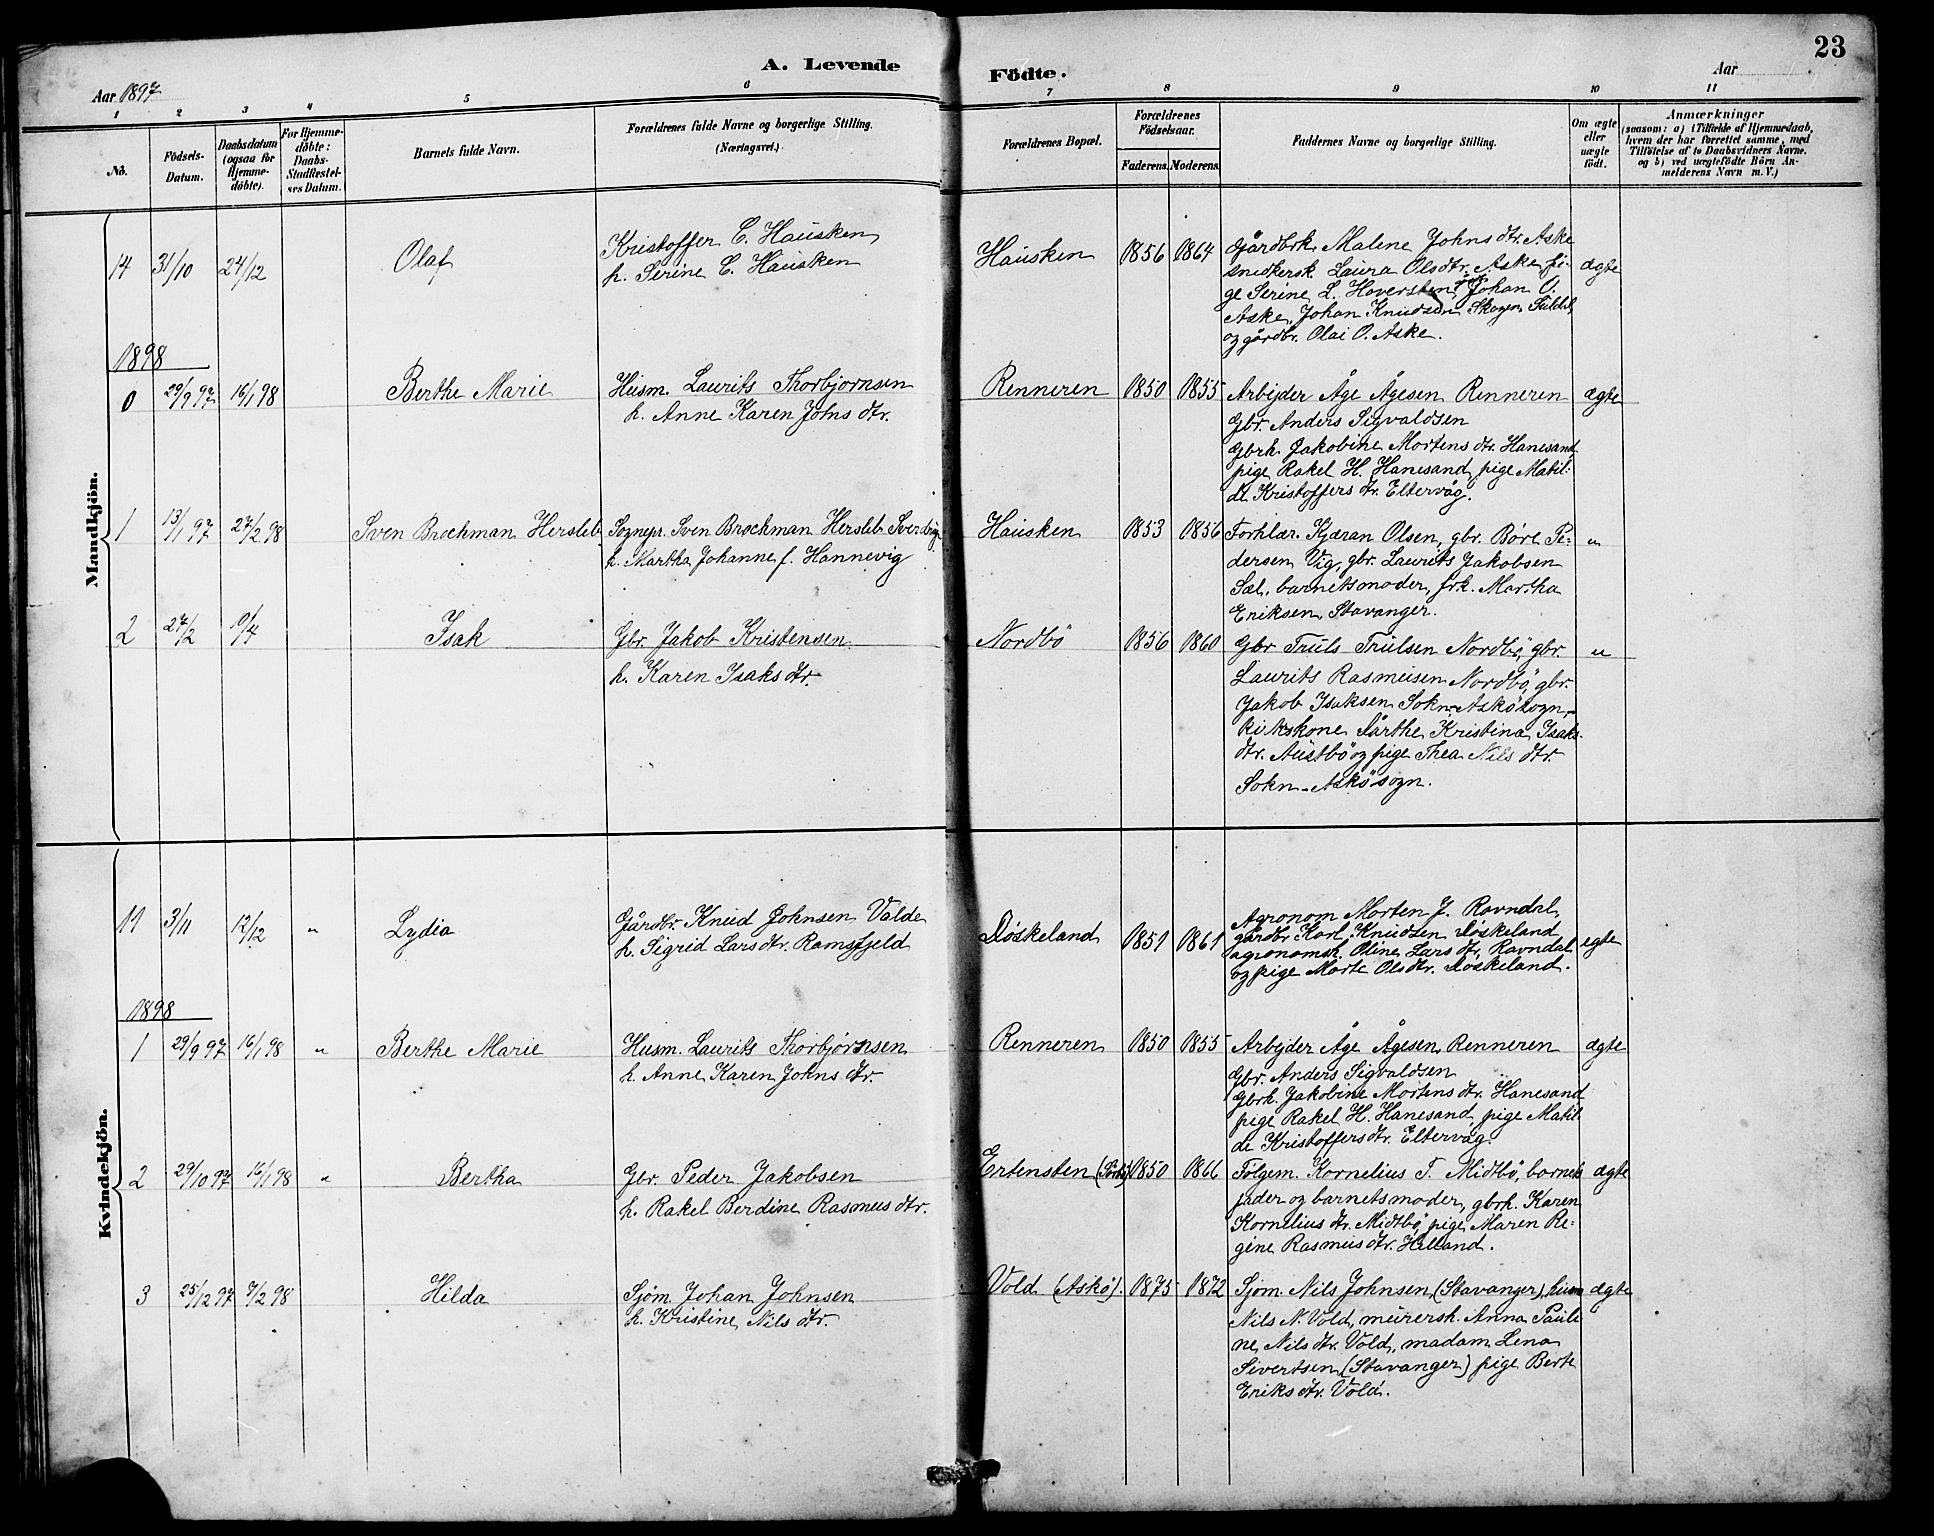 23
A. Levende Födte.
Aar 1897
Aar
1 2 3 4 5 6 7 8 9 10 11
No.
Födsels-Datum.
Daabsdatum (ogsaa for Hjemme-döbte).
For Hjemme-döbte: Daabs-Stadfæstel-ses Datum.
Barnets fulde Navn.
Forældrenes fulde Navne og borgerlige Stilling. (Næringsvei.)
Forældrenes Bopæl.
Forældrenes Födselsaar.
Faderens. Moderens.
Faddernes Navne og borgerlige Stilling.
Om ægte eller uægte födt.
Anmærkninger
(saasom: a) i Tilfælde af Hjemmedaab,
hvem der har forrettet samme, med
Tilföielse af to Daabsvidners Navne.
og b) ved uægtefödte Börn An-
melderens Navn m. V.)
Mandkjön.
14 31/10 24/12 Olaf
Kristoffer C. Hausken
h. Serine C. Hausken
Hausken 1856 1864
Gårdbrk. Malene Johns dtr. Aske
snedkersk. Laura Olsdtr. Aske, pi-
ge Serine L. Hoversten, Johan O.
Aske, Johan Knudsen Skogen
og gårdbr. Olai O. Aske.
ægte
1898
0 29/9 97 16/1 98 Berthe Marie
Husm. Laurits Thorbjornsen
h. Anne Karen Johns dtr.
Renneren 1850 1855
Arbejder Åge Ågesen Renneren
Gbr. Anders Sigvaldsen
Gbrk. Jakobine Mortens dtr. Hanesand
pige Rakel H. Hanesand, pige Matil-
de Kristoffers dtr. Eltervåg.
ægte
1 13/1 97 27/2 98 Sven Brochman Hersleb
Sognepr. Sven Brochman Hersleb Sverdrup
h. Martha Johanne f. Hannevig
Hausken 1853 1856
Forhlær. Kjæran Olsen, gbr. Bore Pe-
dersen Vig, gbr. Laurits Jakobsen
Sæl, barnets moder, frk. Martha
Eriksen Stavanger.
"
2 27/2 10/4 Isak
Gbr. Jakob Kristensen
h. Karen Isaks dtr.
Nordbö 1856 1860
Gbr Truls Trulsen Nordbö, gbr.
Laurits Rasmusen Nordbö, gbr.
Jakob Isaksen Sokn-Askösogn,
kirkskone Dårthe Kristina Isaks-
dtr. Austbö og pige Thea Nils dtr.
Sokn-Askösogn.
"
Kvindekjön.
11 3/11 12/12 " Lydia
Gårdbr. Knud Johnsen Valde
h. Sigrid Lars dtr. Ramsfjeld
Döskeland 1851 1861
Agronom Morten J. Ravndal,
gårdbr. Karl Knudsen Döskeland
agronomsk. Oline Lars dtr. Ravndal
og pige Marte Ols dtr. Döskeland.
egte
1898
1 29/9 97 16/1 98 " Berthe Marie
Husm. Laurits Thorbjørnsen
h. Anne Karen Johns dtr.
Renneren 1850 1855
Arbejder Åge Ågesen, Renneren
Gbr. Anders Sigvaldsen
Gbrk. Jakobine Mortens dtr. Hanesand
pige Rakel H. Hanesand, pige Matil-
de Kristoffersdtr. Eltervåg.
ægte
2 29/10 97 16/1 98 " Bertha
Gbr. Peder Jakobsen
h. Rakel Berdine Rasmus dtr.
Ertensten 1850 1866
Følgem. Kornelius T. Midtbö, barnets
fader og barnets moder, gbrk. Karen
Kornelius dtr. Midtbö, pige Maren Re-
gine Rasmus dtr. Helland.
ægte
3 25/12 97 7/2 98 Hilda
Sjøm. Johan Johnsen
h. Kristine Nils dtr.
Vold (Askö). 1875 1872
Sjøm. Nils Johnsen (Stavanger), husm
Nils N. Vold, murersk. Anna Pauli-
ne Nils dtr. Vold, madam Lena
Sivertsen (Stavanger) pige Berte
Eriks dtr. Vold.
ægte